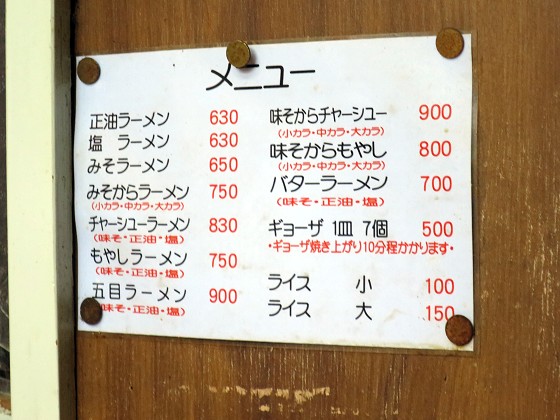 メニュー
正油ラーメン 630
塩 ラーメン 630
みそラーメン 650
みそからラーメン 750
(小カラ・中カラ・大カラ)
チャーシューラーメン 830
(味そ・正油・塩)
もやしラーメン 750
(味そ・正油・塩)
五目ラーメン 900
(味そ・正油・塩)
味そからチャーシュー 900
(小カラ・中カラ・大カラ)
味そからもやし 800
(小カラ・中カラ・大カラ)
バターラーメン 700
(味そ・正油・塩)
ギョーザ 1皿 7個 500
・ギョーザ焼き上がり10分程かかります・
ライス 小 100
ライス 大 150